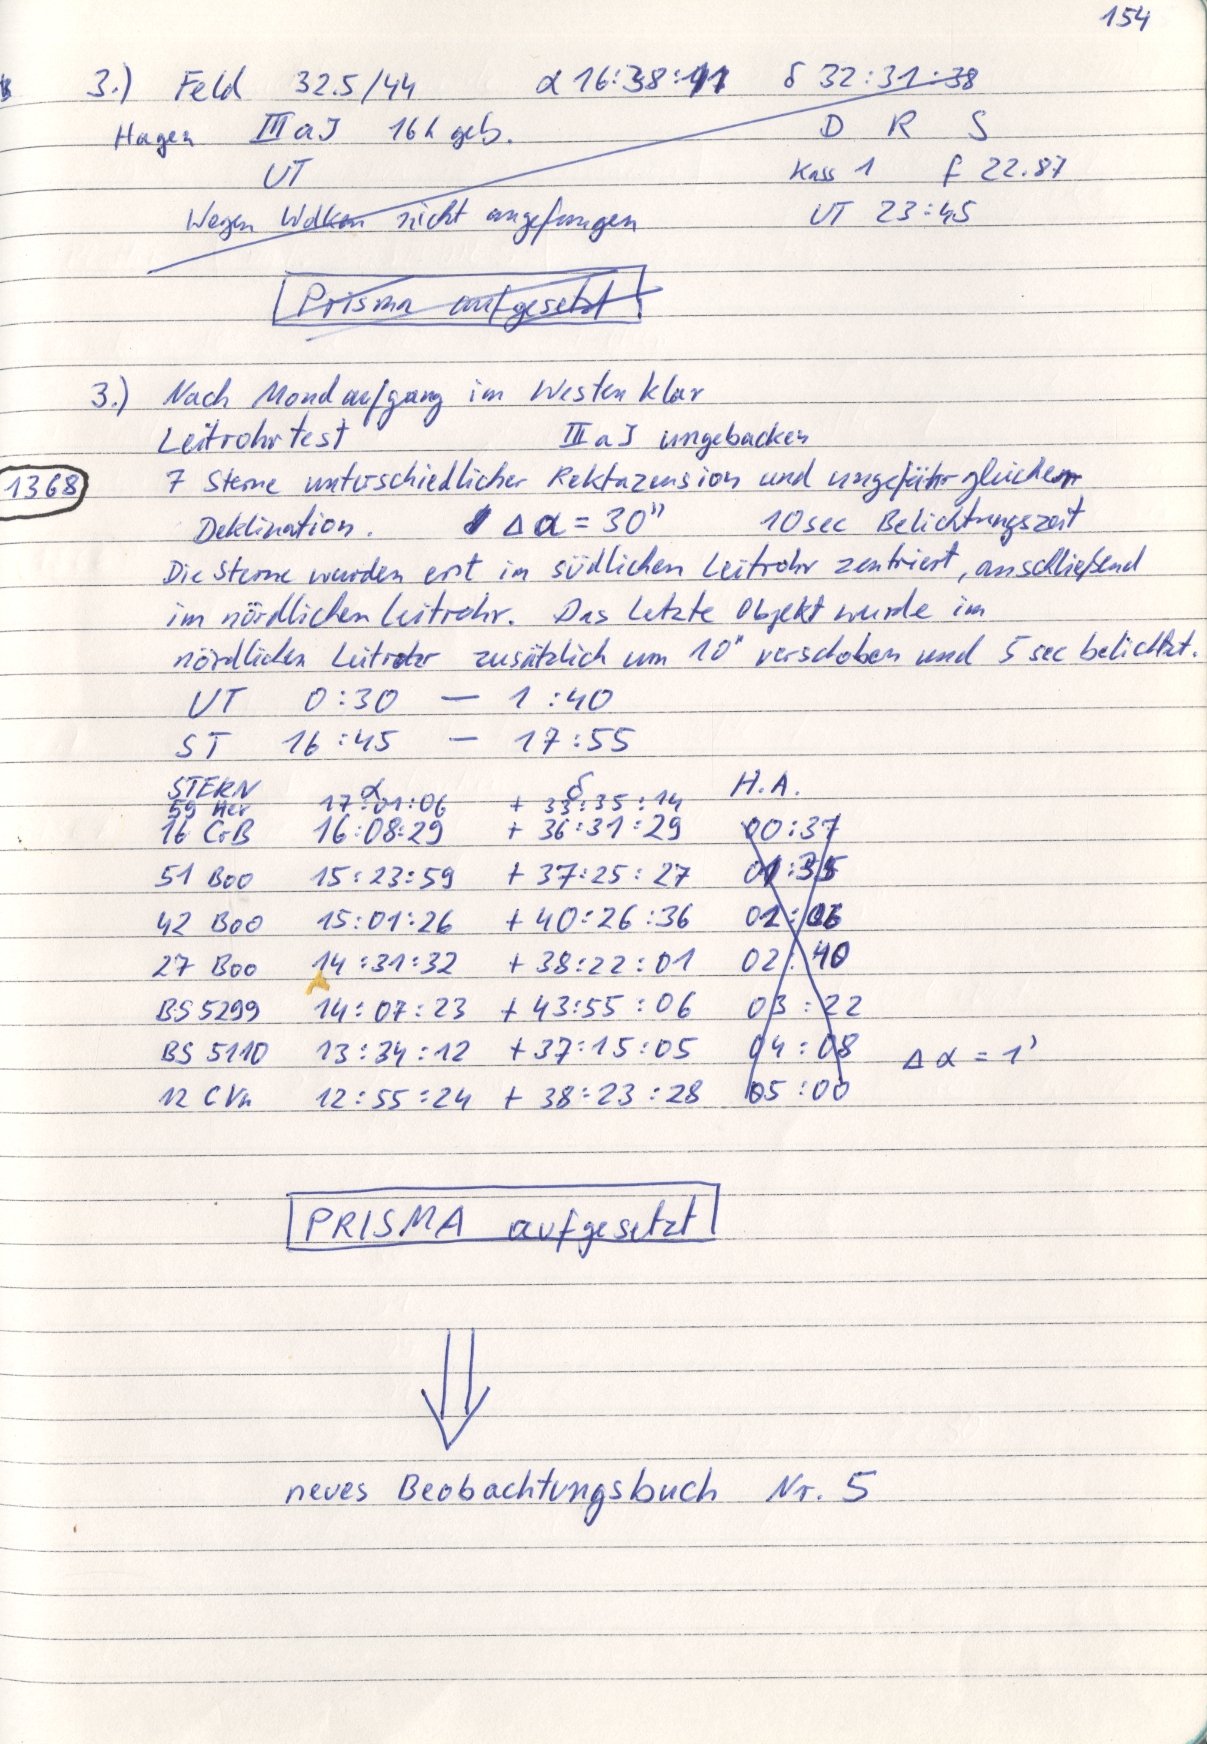 154
3.) Feld 32.5/44 α 16:38:41 δ 32:31:38
Hagen III a J 16h geb. D R S
UT Kass 1 f 22.87
Wegen Wolken nicht angefangen UT 23:45
Prisma aufgesetzt
3.) Nach Mondaufgang im Westen klar
Leitrohrtest III a J ungebacken
1368 7 Sterne unterschiedlicher Rektazension und ungefähr gleicher
Deklination. Δα = 30" 10sec Belichtungszeit
Die Sterne wurden erst im südlichen Leitrohr zentriert, anschließend
im nördlichen Leitrohr. Das letzte Objekt wurde im
nördlichen Leitrohr zusätzlich um 10" verschoben und 5 sec belichtet.
UT 0:30 — 1:40
ST 16:45 — 17:55
STERN α δ H.A.
59 Her 17:01:06 + 33:35:14
16 CrB 16:08:29 + 36:31:29 00:37
51 Boo 15:23:59 + 37:25:27
42 Boo 15:01:26 + 40:26:36
27 Boo 14:31:32 + 38:22:01 02:40
BS 5299 14:07:23 + 43:55:06 03:22
BS 5110 13:34:12 + 37:15:05 04:08 Δα = 1'
12 CVn 12:55:24 + 38:23:28 05:00
PRISMA aufgesetzt
neues Beobachtungsbuch Nr. 5